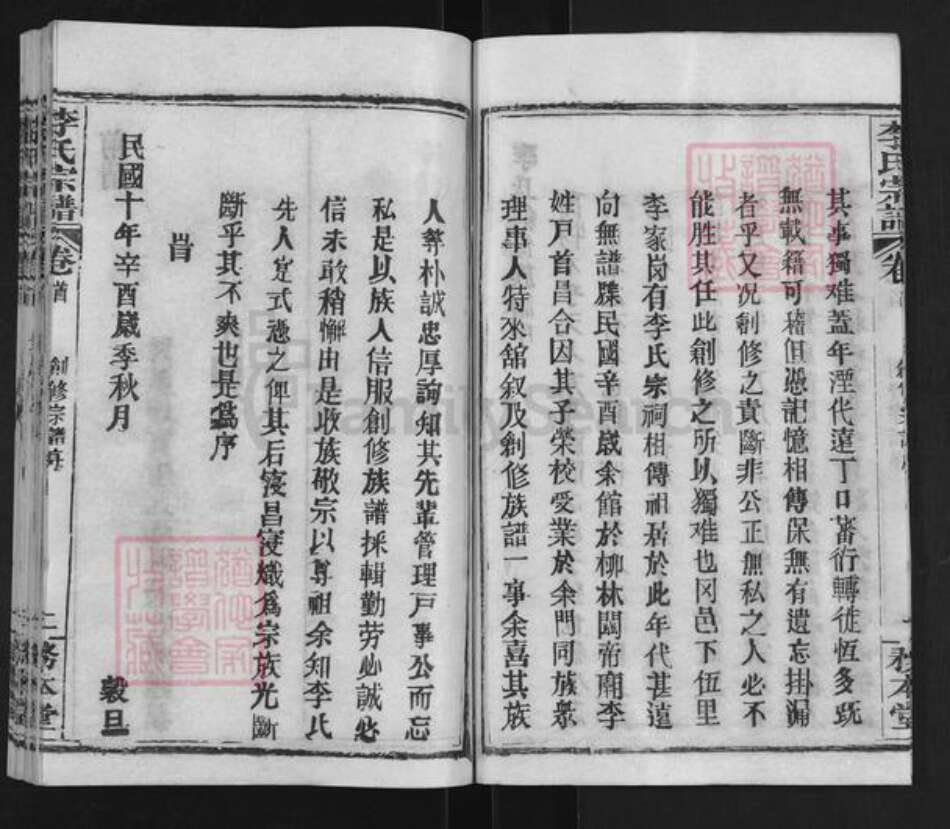 李氏宗譜
其事獨难蓋年湮代遠丁口蕃衍轉徙恆多既
無載籍可稽但憑記憶相傳保無有遺忘掛漏
者乎又况創修之責斷非公正無私之人必不
能胜其任此創修之所以獨难也冈邑下伍里
李家岗有李氏宗祠相傳祖居於此年代甚遠
向無譜牒民國辛酉歲余館於柳林關帝廟李
姓戶首昌合因其子榮校受業於余門同族衆
理事人特來舘叙及創修族譜一事余喜其族
務本堂
人等朴誠忠厚詢知其先輩管理戶事公而忘
私是以族人信服創修族譜採輯勤劳必誠必
信未敢稍懈由是收族敬宗以尊祖余知李氏
先人定式憑之俾其后寖昌寖熾為宗族光斷
斷乎其不爽也是為序
旹
民國十年辛酉歲季秋月 穀旦
李氏宗譜 卷首 創修宗譜序 二 務本堂
FamilySearch